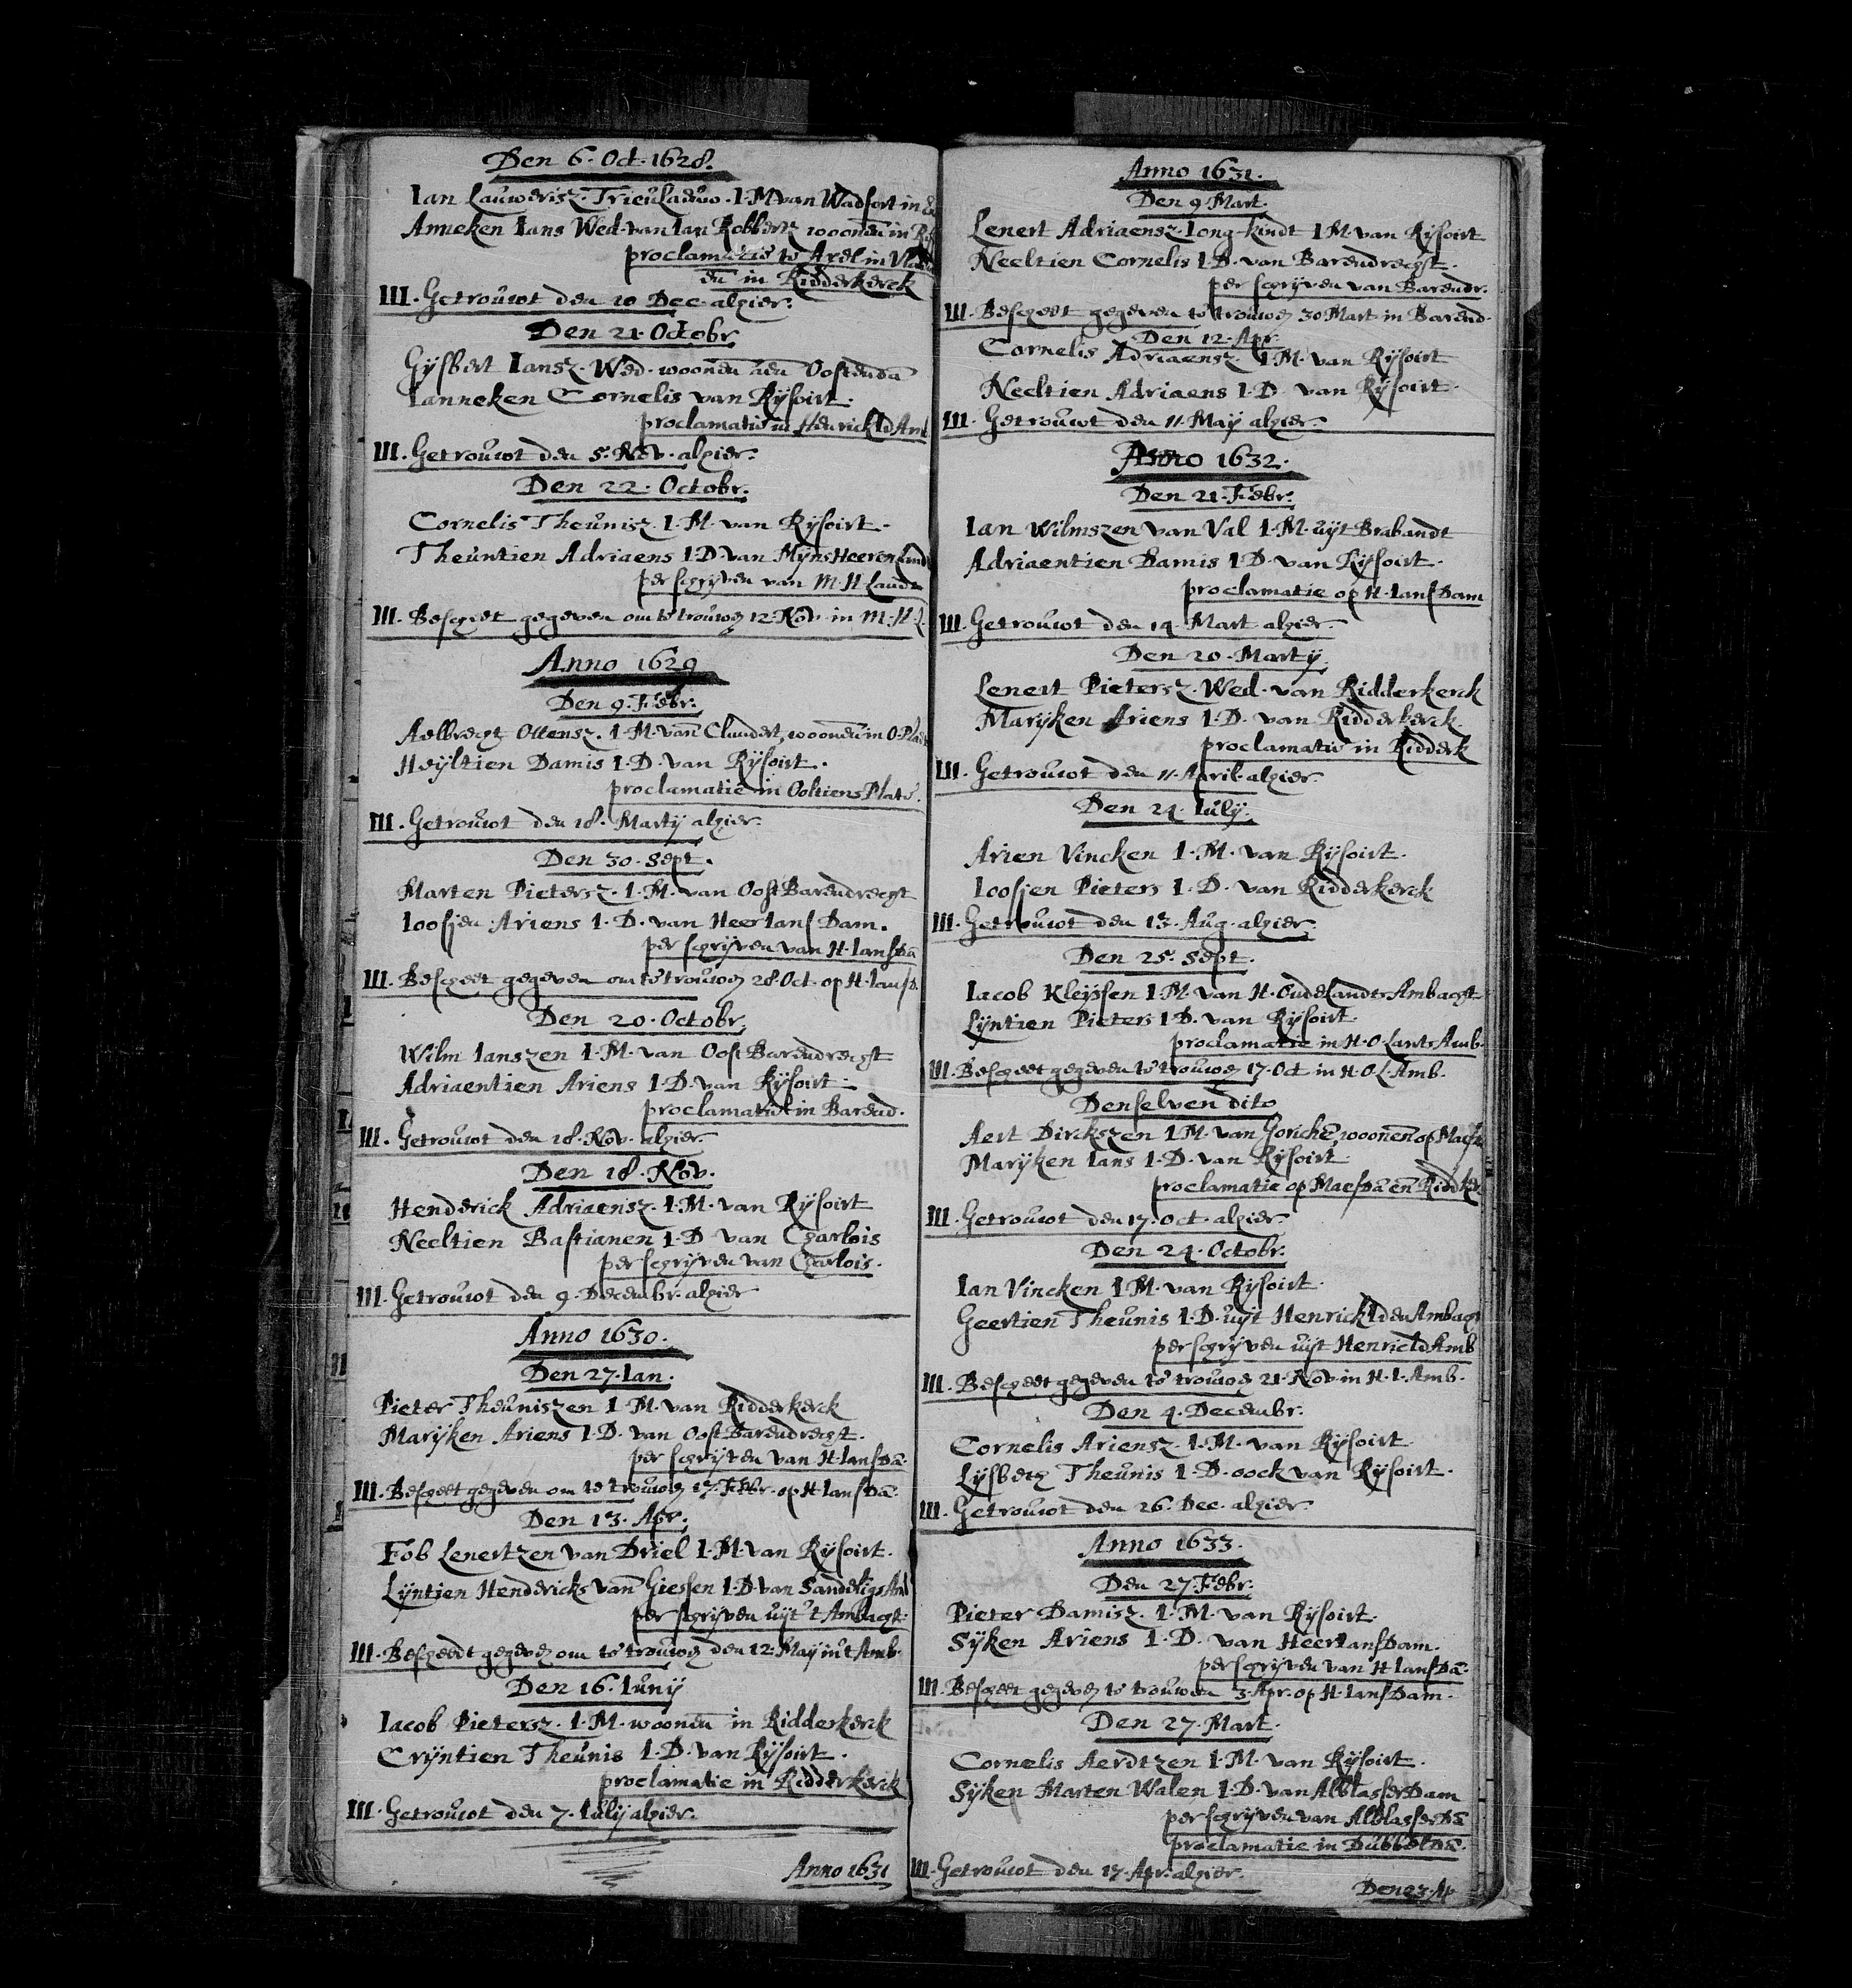 Den 6. Oct. 1628.
Ian Lauwerisz. I. M. van Wadfort in
Anneken Ians Wed. van Ian Robbertz woonen in
proclamatie te Axel in
en in Ridderkerck
III. Getrouwt den 10 Dec. alhier.
Den 21. Octobr
Gysbert Iansz. Wed. woonen aen Oostendã
Ianneken Cornelis van Rysoirt.
proclamatie in HenrickIdAm
III. Getrouwt den 5. Nov. alhier.
Den 22. Octobr.
Cornelis Theunisz. I. M. van Rysoirt.
Theuntien Adriaens I. D. van Myns Heeren Land
per schryven van M. H. Landt
III. Bescheet gegeven om te trouwen 12. Nov. in M. H. L.
Anno 1629
Den 9. Febr.
Aelbrecht Ottensz. I. M. van Clundert, woonen in O. Plaet
Heyltien Damis I. D. van Rysoirt.
proclamatie in Ooltiens Plate.
III. Getrouwt den 18. Martij alhier.
Den 30. Sept.
Marten Pietersz. I. M. van Oost Barendrecht
Ioosjen Ariens I. D. van Heer Ians Dam.
per schryven van H. Ians Dã
III. Bescheet gegeven om te trouwen 28. Oct. op H. Ians D.
Den 20. Octobr.
Wilm Ianszen I. M. van Oost Barendrecht
Adriaentien Ariens I. D. van Rysoirt.
proclamatie in Barend.
III. Getrouwt den 18. Nov. alhier.
Den 18. Nov.
Henderick Adriaensz. I. M. van Rysoirt
Neeltien Bastianen I. D van Charlois
per schryven van Charlois.
III. Getrouwt den 9. Decembr. alhier
Anno 1630.
Den 27. Ian.
Pieter Theuniszen I. M. van Ridderkerck
Maryken Ariens I. D. van Oost Barendrecht.
per schryven van H. Ians Dã.
III. Bescheet gegeven om te trouwen 17. Febr. op H. Ians Dã.
Den 13. Apr.
Fob Lenertzen van Driel I. M. van Rysoirt.
Lyntien Hendericks van Giessen I. D. van Sandeligs Am
per schryven uyt 't Ambacht.
III. Bescheedt gegeven om te trouwen den 12. May in 't Amb.
Den 16. Iunij
Iacob Pietersz. I. M. woonen in Ridderkerck
Cryntien Theunis I. D. van Rysoirt.
proclamatie in Ridderkerck
III. Getrouwt den 7. Iulij alhier.
Anno 1631
Anno 1631.
Den 9. Mart.
Lenert Adriaensz. Iong-kindt I. M. van Rysoirt
Neeltien Cornelis I. D. van Barendrecht.
per schryven van Barendr.
III. Bescheet gegeven te trouwen 30 Mart in Barend.
Den 12. Apr.
Cornelis Adriaensz. I. M. van Rysoirt
Neeltien Adriaens I. D. van Rysoirt.
III. Getrouwt den 11. May alhier.
Anno 1632.
Den 21. Febr.
Ian Wilmszen van Val I. M. uyt Brabandt
Adriaentien Damis I. D. van Rysoirt.
proclamatie op H. Ians Dam
III. Getrouwt den 14. Mart alhier.
Den 20. Martij
Lenert Pietersz. Wed. van Ridderkerck
Maryken Ariens I. D. van Ridderkerck.
proclamatie in Ridderk
III. Getrouwt den 11. April. alhier.
Den 24. Iulij.
Arien Vincken I. M. van Rysoirt.
Ioosjen Pieters I. D. van Ridderkerck
III. Getrouwt den 13. Aug. alhier.
Den 25. Sept.
Iacob Kleyssen I. M. van H. Oudelandts Ambacht
Lyntien Pieters I. D. van Rysoirt.
proclamatie in H. O. Lants Amb.
III. Bescheet gegeven te trouwen 17. Oct in H. O. L. Amb.
Denselven dito
Aert Dirckszen I. M. van Gorichẽ, woonen op Maesd
Maryken Ians I. D. van Rysoirt.
proclamatie op Maesdã en Ridderk
III. Getrouwt den 17. Oct. alhier.
Den 24. Octobr.
Ian Vincken I. M. van Rysoirt.
Geertien Theunis I. D. uyt Henrick Iden Ambacht
per schryven uyt Henrick Id Amb
III. Bescheet gegeven te trouwen 21. Nov. in H. I. Amb.
Den 4. Decembr.
Cornelis Ariensz. I. M. van Rysoirt.
Lysbeth Theunis I. D. oock van Rysoirt.
III. Getrouwt den 26. Dec. alhier.
Anno 1633.
Den 27. Febr.
Pieter Damisz. I. M. van Rysoirt.
Syken Ariens I. D. van Heer Ians Dam.
per schryven van H Ians Dã.
III. Bescheet gegeven te trouwen 3. Apr. op H. Ians Dam.
Den 27. Mart.
Cornelis Aerdtzen I. M. van Rysoirt.
Syken Marten Walen I. D. van Alblasser Dam
per schryven van Alblasser Dã
proclamatie in Dubbel Dã.
III. Getrouwt den 17. Apr. alhier.
Den 23. Ap